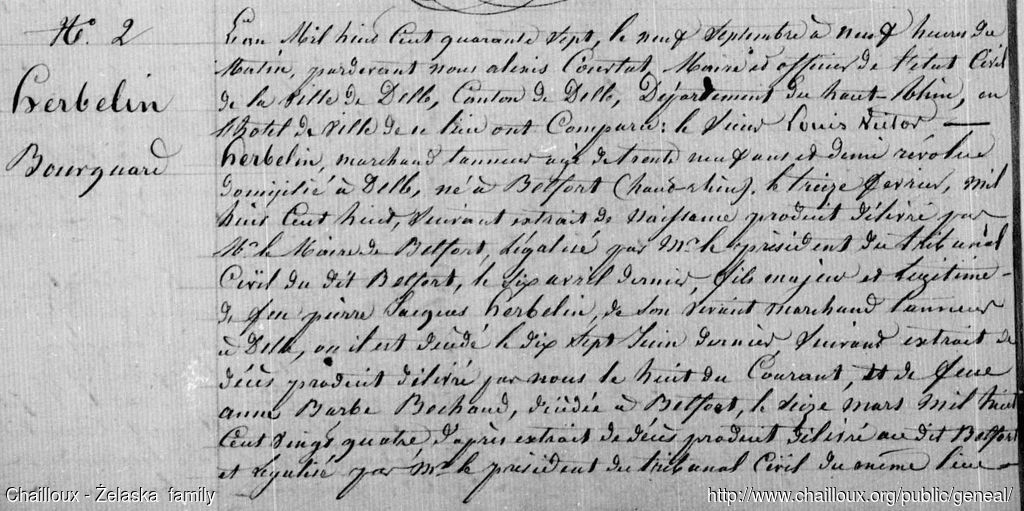 N.º 2
herbelin
Bourquard
L'an Mil huit Cent quarante Sept, le neuf Septembre à neuf heures du
Matin, pardevant nous alexis Courtat Maire et officier de l'état Civil
de la ville de Delle, Canton de Delle, Département du haut Rhin, en
l'hotel de ville de ce lieu ont Comparu: le Sieur Louis Victor —
herbelin, marchand tanneur agé de trente neuf ans et demi révolu
domicilié à Delle, né à Belfort (haut-rhin), le treize fevrier, mil
huit Cent huit, Suivant extrait de naissance produit délivré par
Mr. le Maire de Belfort, légalisé par Mr. le président du tribunal
Civil du dit Belfort, le six avril dernier, fils majeur et legitime -
de feu pierre Jacques herbelin, de son vivant marchand tanneur
à Delle, où il est décédé le dix Sept Juin dernier Suivant extrait de
décès produit délivré par nous le huit du Courant, et de feue
anne Barbe Bechaud, décédée à Belfort, le seize mars mil huit
Cent vingt quatre d'après extrait de décès produit délivré au dit Belfort
et légalisé par Mr. le président du tribunal Civil du même lieu -
Chailloux - Żelaska family
http://www.chailloux.org/public/geneal/